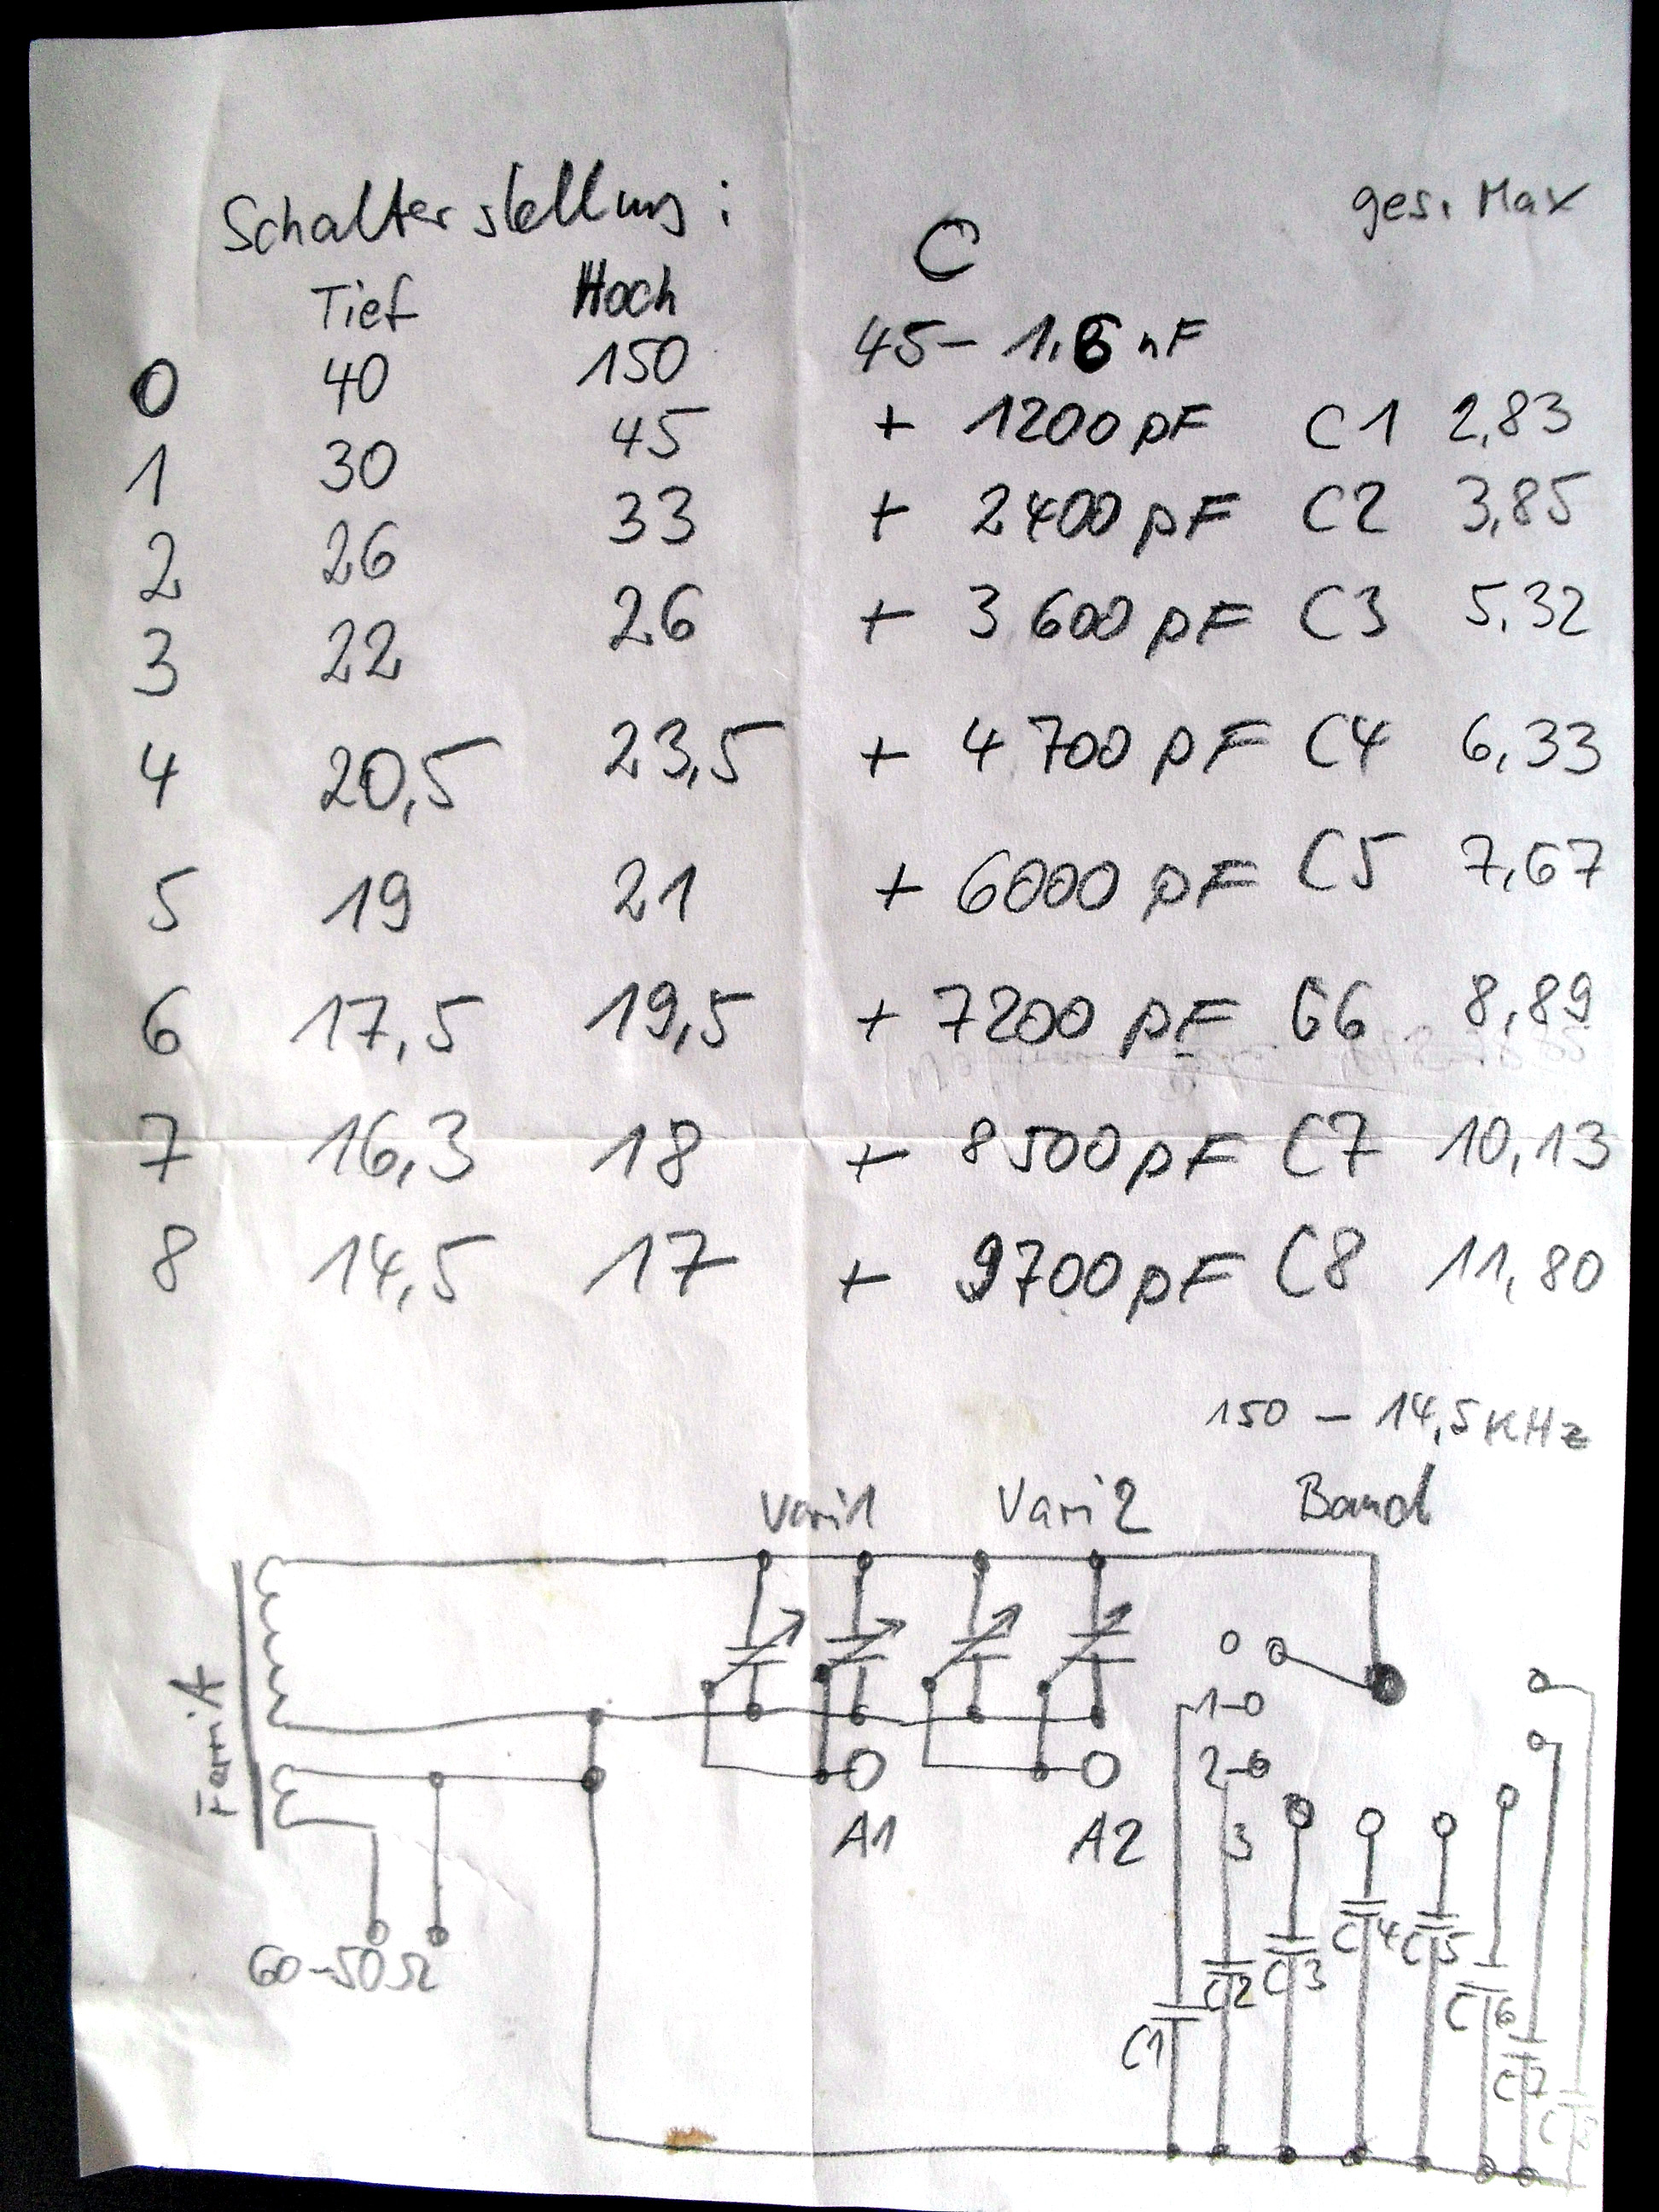 Schalterstellung: ges. Max
Tief Hoch C
0 40 150 45 – 1.6 nF
1 30 45 + 1200 pF C1 2,83
2 26 33 + 2400 pF C2 3,85
3 22 26 + 3600 pF C3 5,32
4 20,5 23,5 + 4700 pF C4 6,33
5 19 21 + 6000 pF C5 7,67
6 17,5 19,5 + 7200 pF C6 8,89
7 16,3 18 + 8500 pF C7 10,13
8 14,5 17 + 9700 pF C8 11,80
150 – 14,5 KHz
Vari1 Vari2 Band
FerriA
0
1
2
3
A1 A2
60-50 Ω
C1 C2 C3 C4 C5 C6 C7 C8